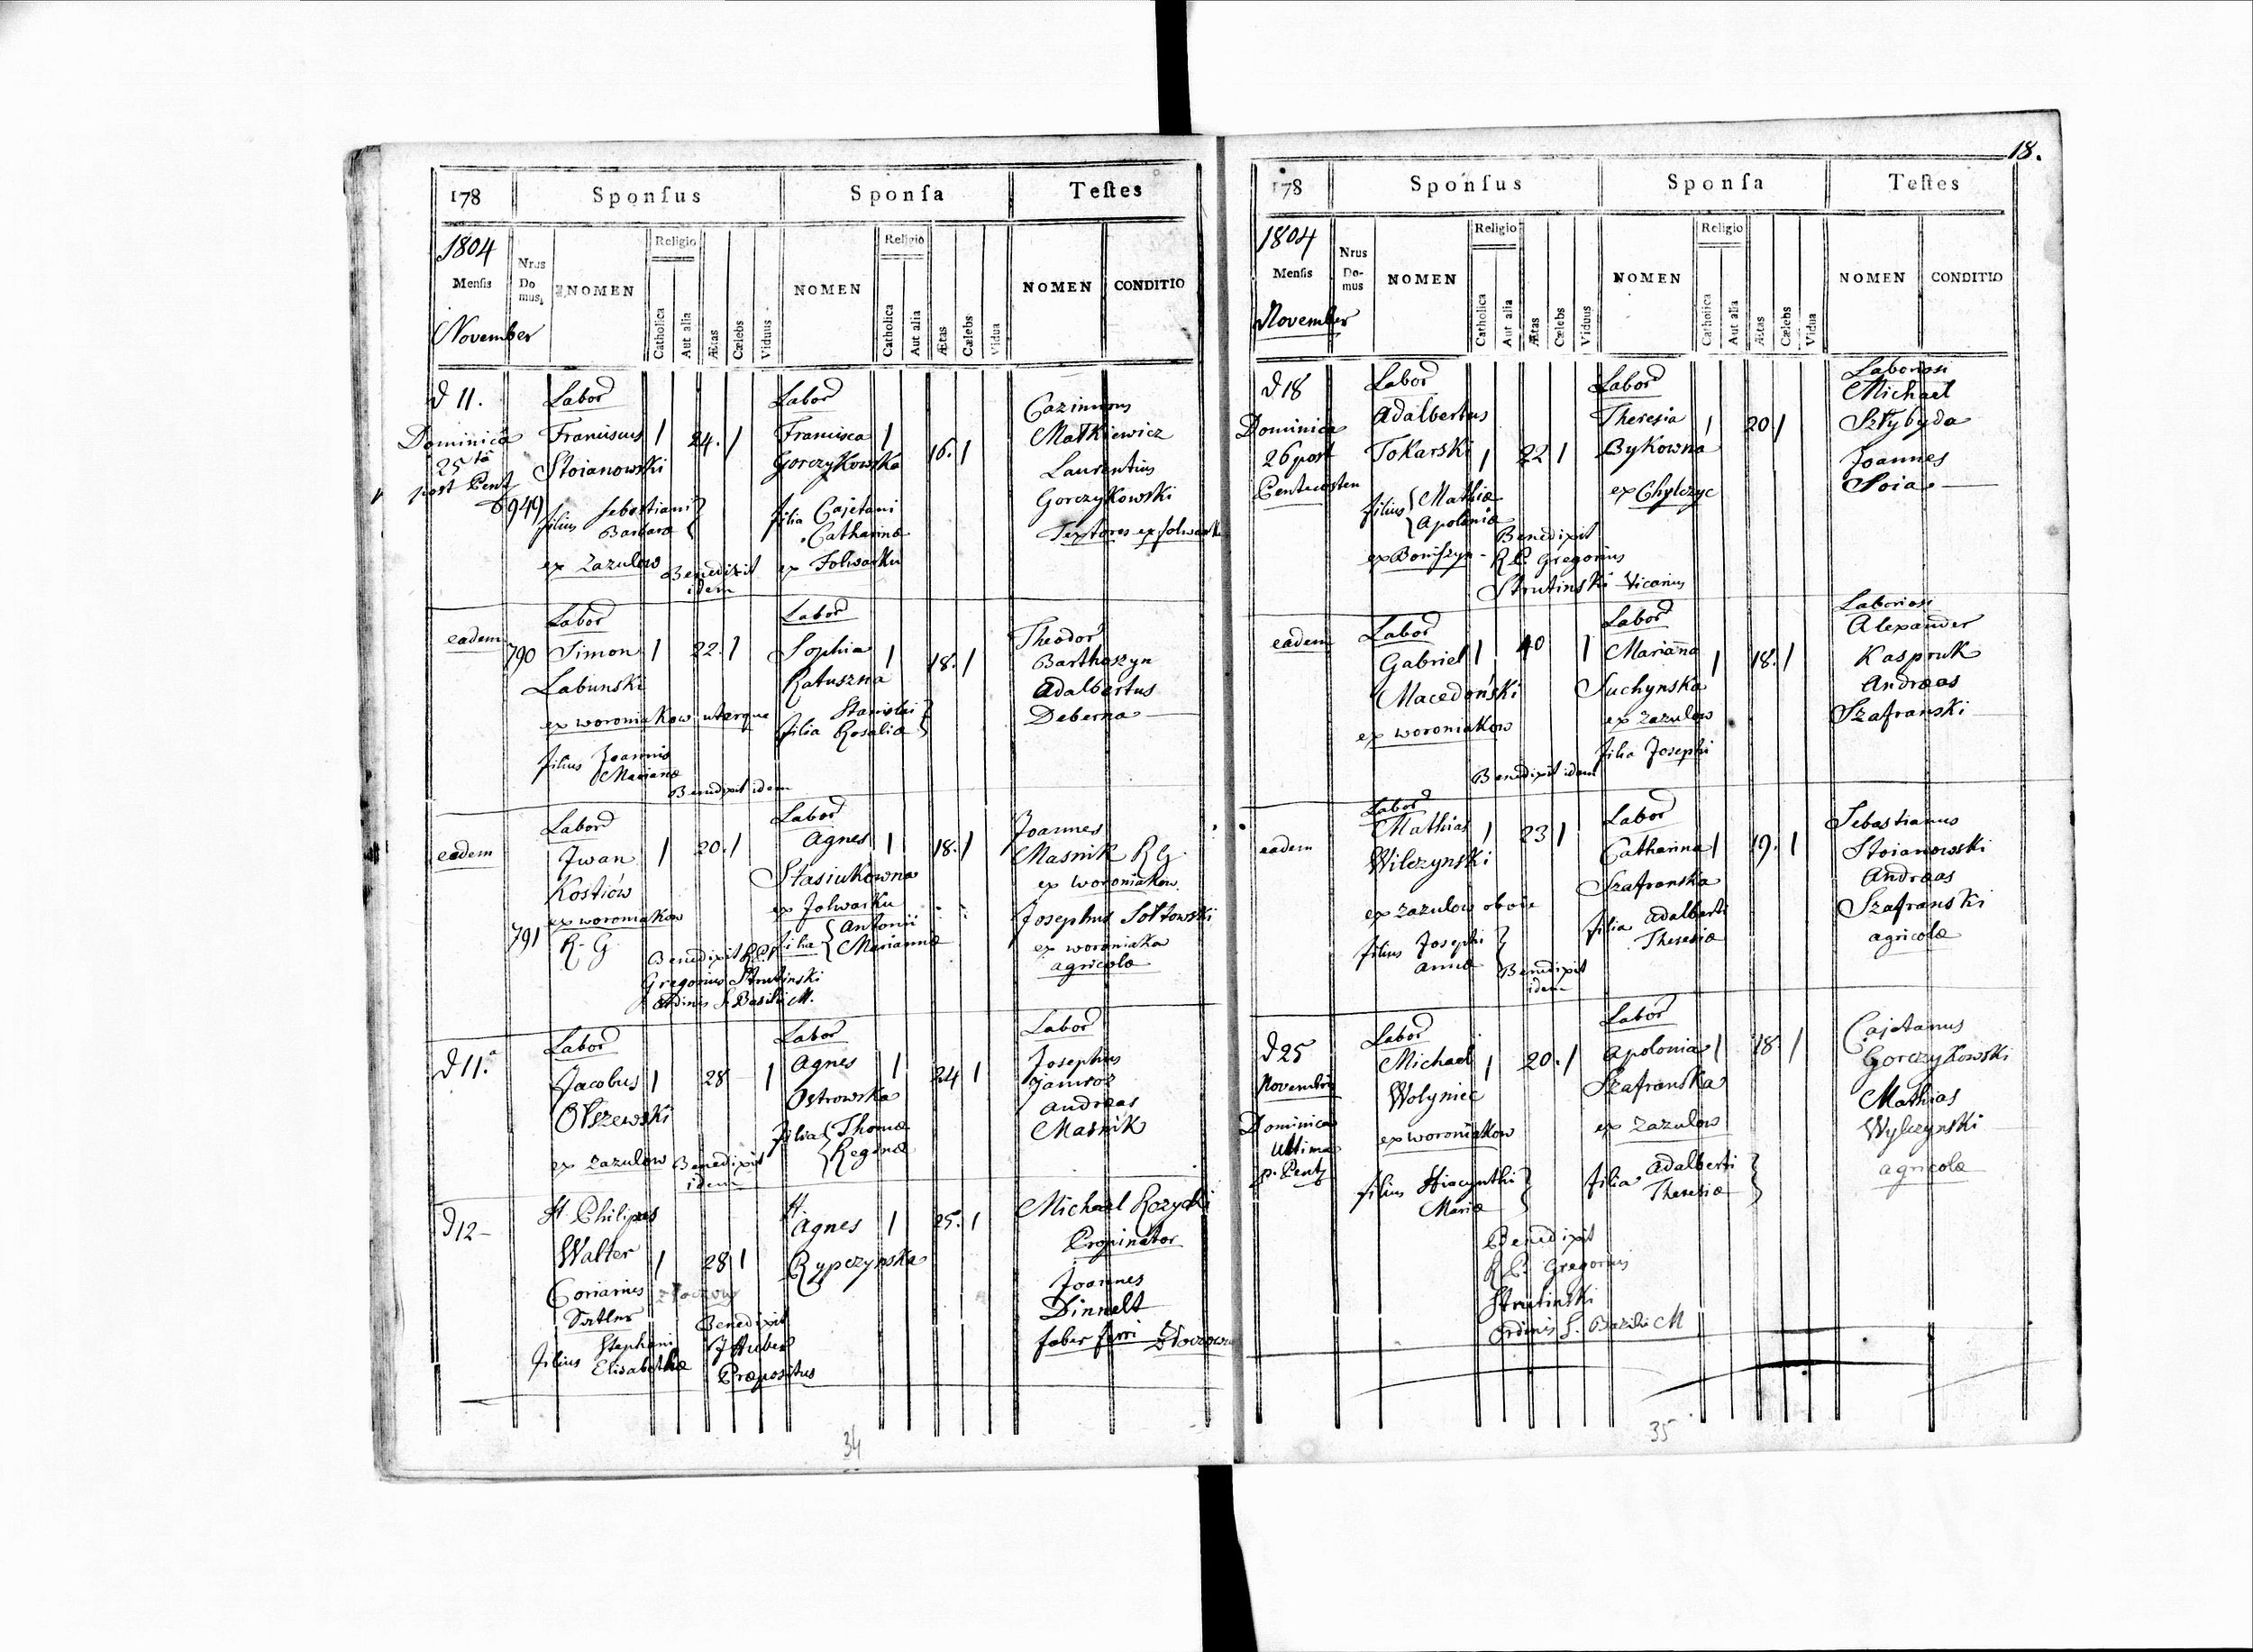 178 Sponſus Sponſa Teſtes
1804
Menſis
November
Nrus
Do
mus
NOMEN
Religio
Catholica
Aut alia
Ætas
Cælebs
Viduus
NOMEN
Religio
Catholica
Aut alia
Ætas
Cælebs
Vidua
NOMEN
CONDITIO
d 11.
Dominica
25ta
post Pent
949
Labor
Franciscus / 24. /
Stoianowski
filius Sebastiani
Barbara
ex Zazulow
Benedixit
idem
Labor
Francisca / 16. /
Gorczykowska
filia Cajetani
Catharinæ
ex Folwarku
Cazimirus
Matkiewicz
Laurentius
Gorczykowski
Textores ex folwarku
eadem
790
Labor
Simon / 22. /
Labunski
ex woroniakow uterque
filius Joannis
Mariana
Benedixit idem
Labor
Sophia / 18. /
Ratuszna
filia Stanislai
Rosaliæ
Theodor
Barthoszyn
Adalbertus
Deberna
eadem
791
Labor
Jwan / 20. /
Kostiów
ex woroniakow
R. G.
Benedixit R. P.
Gregorius Strutinski
Ordinis S. Basilii M.
Labor
Agnes / 18. /
Stasiukowna
ex Folwarku
filia Antonii
Mariannæ
Joannes
Masnik R G.
ex woroniakow.
Josephus Sołtowski
ex woroniaka
agricolæ
d 11.a
Labor
Jacobus / 28 /
Olszewski
ex Zazulow
Benedixit
idem
Labor
Agnes / 24 /
Ostrowska
filia Thomæ
Reginæ
Labor
Josephus
Jamroz
Andreas
Masnik
d 12
H Philipus
Walter / 28 /
Coriarius złoczow
Satler
filius Stephani
Elisabethæ
Benedixit
J Huber
Præpositus
H
Agnes / 25. /
Rypczynska
Michael Rozycki
Propinator
Joannes
Dinnelt
faber ferri
34
18.
178 Sponſus Sponſa Teſtes
1804
Menſis
November
Nrus
Do-
mus
NOMEN
Religio
Catholica
Aut alia
Ætas
Cælebs
Viduus
NOMEN
Religio
Catholica
Aut alia
Ætas
Cælebs
Vidua
NOMEN
CONDITIO
d 18
Dominica
26 post
Pentecosten
Labor
Adalbertus
Tokarski / 22 /
filius Mathiæ
Apoloniæ
ex Boniszyn
Benedixit
R. P. Gregorius
Strutinski Vicarius
Labor
Theresia / 20 /
Bykowna
ex Chylczyc
Laboriosi
Michael
Sztybyda
Joannes
Soia
eadem
Labor
Gabriel / 40 /
Macedoński
ex woroniakow
Benedixit idem
Labor
Marianna / 18. /
Suchynska
ex Zazulow
filia Josephi
Laboriosi
Alexander
Kaspruk
Andreas
Szafranski
eadem
Labor
Mathias / 23 /
Wilczynski
ex Zazulow oboie
filius Josephi
Annæ
Benedixit
idem
Labor
Catharina / 19. /
Szafranska
filia Adalberti
Theresiæ
Sebastianus
Stoianowski
Andreas
Szafranski
agricolæ
d 25
Novembris
Dominica
Ultima
p. Pent
Labor
Michael / 20. /
Wolyniec
ex woroniakow
filius Hiacynthi
Mariæ
Benedixit
R. P. Gregorius
Strutinski
Ordinis S. Basilii M
Labor
Apolonia / 18 /
Szafranska
ex Zazulow
filia Adalberti
Theresiæ
Cajetanus
Gorczykowski
Mathias
Wylczynski
agricolæ
35